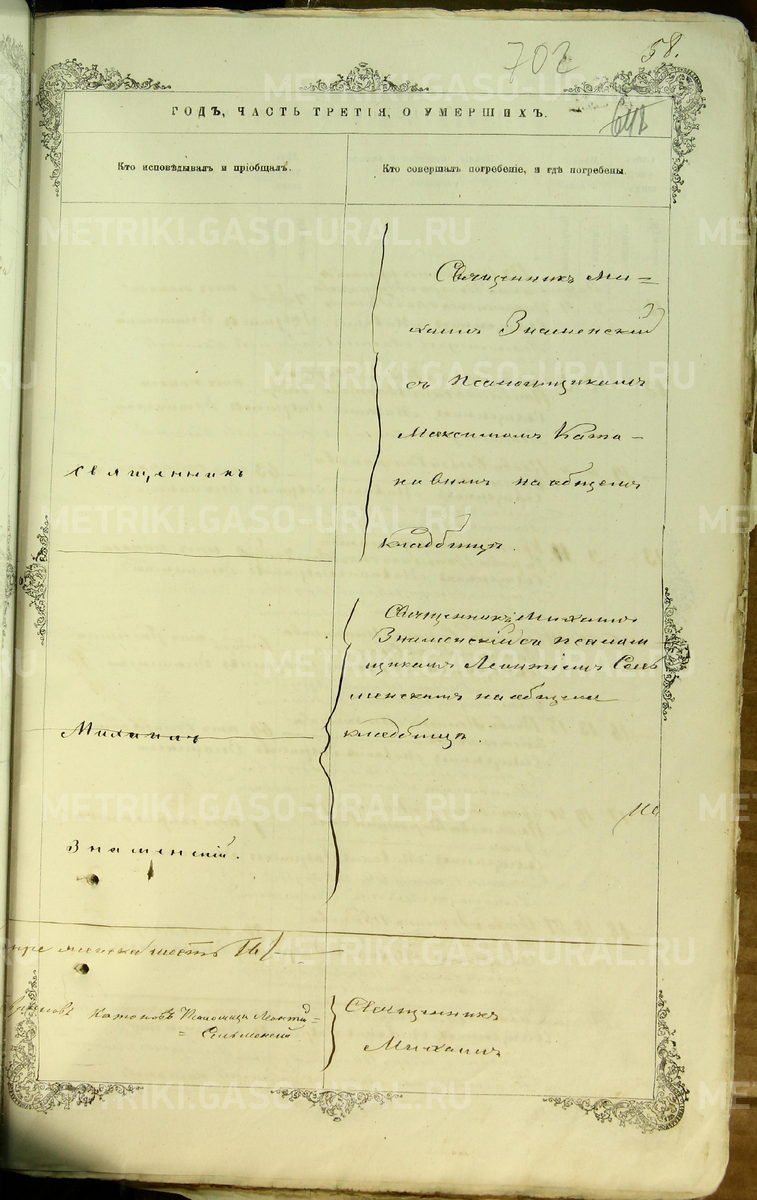 702
58.
ГОДЪ, ЧАСТЬ ТРЕТІЯ, О УМЕРШИХЪ.
Кто исповѣдывалъ и пріобщалъ.
Кто совершалъ погребеніе, и гдѣ погребены.
METRIKI.GASO-URAL.RU
Священникъ Ми=
хаилъ Знаменскій
съ псаломщикомъ
Максимомъ Като-
новымъ на общемъ
кладбищѣ.
священникъ
Священникъ Михаилъ
Знаменскій съ псалом
щикомъ Леонтіемъ Сель
менскимъ на общемъ
кладбищѣ.
Михаилъ
Знаменскій.
шесть
Катоновъ Псаломщикъ Леонтій
= Сельменскій
Священникъ
Михаилъ